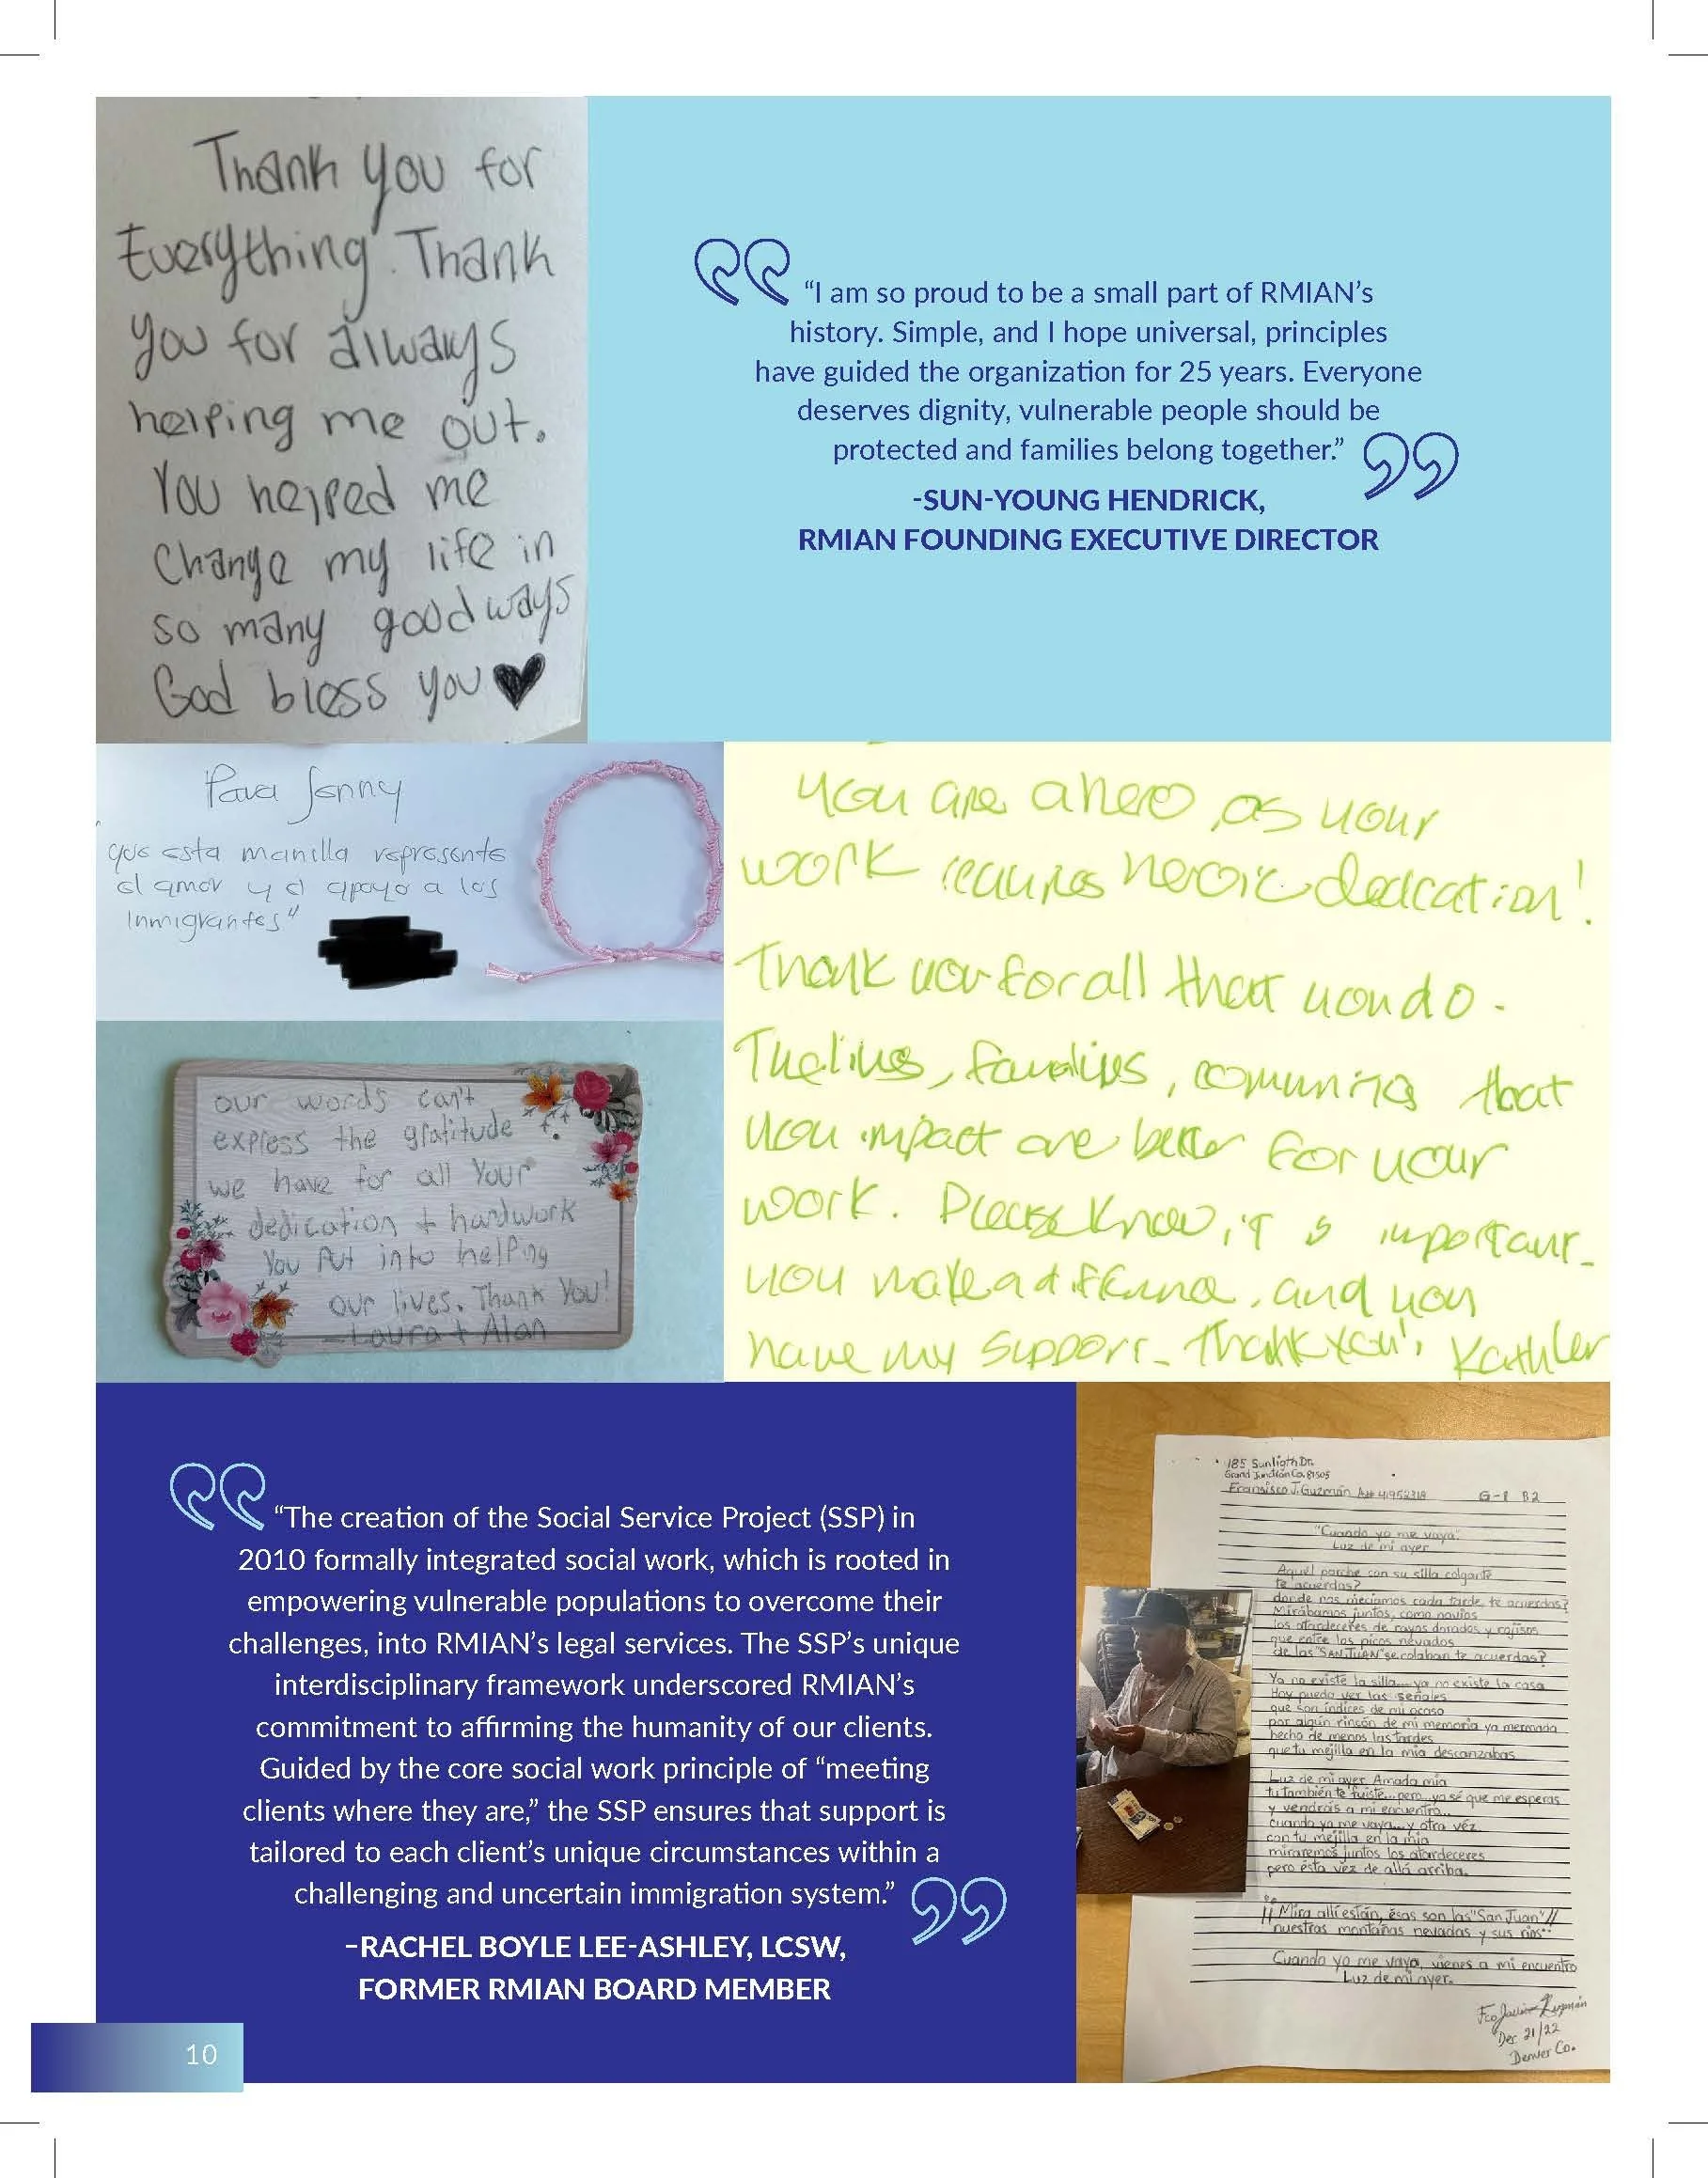 Thank you for
Everything. Thank
you for always
helping me out.
You helped me
Change my life in
so many good ways
God bless you
“I am so proud to be a small part of RMIAN’s
history. Simple, and I hope universal, principles
have guided the organization for 25 years. Everyone
deserves dignity, vulnerable people should be
protected and families belong together.”
-SUN-YOUNG HENDRICK,
RMIAN FOUNDING EXECUTIVE DIRECTOR
Para Jenny
que esta manilla represente
el amor y el apoyo a los
Inmigrantes"
our words can't
express the gratitude
we have for all your
dedication + hardwork
You Put into helping
our lives. Thank You!
- Laura + Alan
You are a hero, as your
work requires heroic dedication!
Thank you for all that you do.
The lives, families, that
you impact are better for your
work. Please know, it is important.
you make a difference, and you
have my support. Thank you!
“The creation of the Social Service Project (SSP) in
2010 formally integrated social work, which is rooted in
empowering vulnerable populations to overcome their
challenges, into RMIAN’s legal services. The SSP’s unique
interdisciplinary framework underscored RMIAN’s
commitment to affirming the humanity of our clients.
Guided by the core social work principle of “meeting
clients where they are,” the SSP ensures that support is
tailored to each client’s unique circumstances within a
challenging and uncertain immigration system.”
–RACHEL BOYLE LEE-ASHLEY, LCSW,
FORMER RMIAN BOARD MEMBER
185 Sunligth Dr.
Grand Junction Co. 81505
Fransisco J. Guzmán A# 41952318 G-1 B2
"Cuando yo me vaya"
Luz de mi ayer
Aquel porche con su silla colgante
te acuerdas?
donde nos mecíamos cada tarde, te acuerdas?
Mirábamos juntos, como novios
los atardeceres de rayos dorados y rojisos
que entre los picos nevados
de los "SAN JUAN" se colaban te acuerdas?
Ya no existe la silla... ya no existe la casa
Hoy puedo ver las señales
que son índices de mi ocaso
por algún rincón de mi memoria ya mermada
hecho de menos las tardes
que tu mejilla en la mía descanzabas
Luz de mi ayer Amada mía
tu también te fuiste... pero... yo sé que me esperas
y vendrás a mi encuentro...
cuando yo me vaya... y otra véz
con tu mejilla en la mía
miraremos juntos los atardeceres
pero ésta vez de allá arriba.
¡¡Mira allí están, ésas son las "San Juan"!!
nuestras montañas nevadas y sus ríos
Cuando yo me vaya, vienes a mi encuentro
Luz de mi ayer.
Fco Javier Guzmán
Dec 21/22
Denver Co.
10